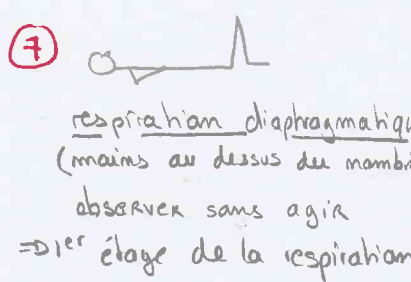 7
respiration diaphragmatiqu
(mains au dessus du nombri
observer sans agir
=> 1er étage de la respiration